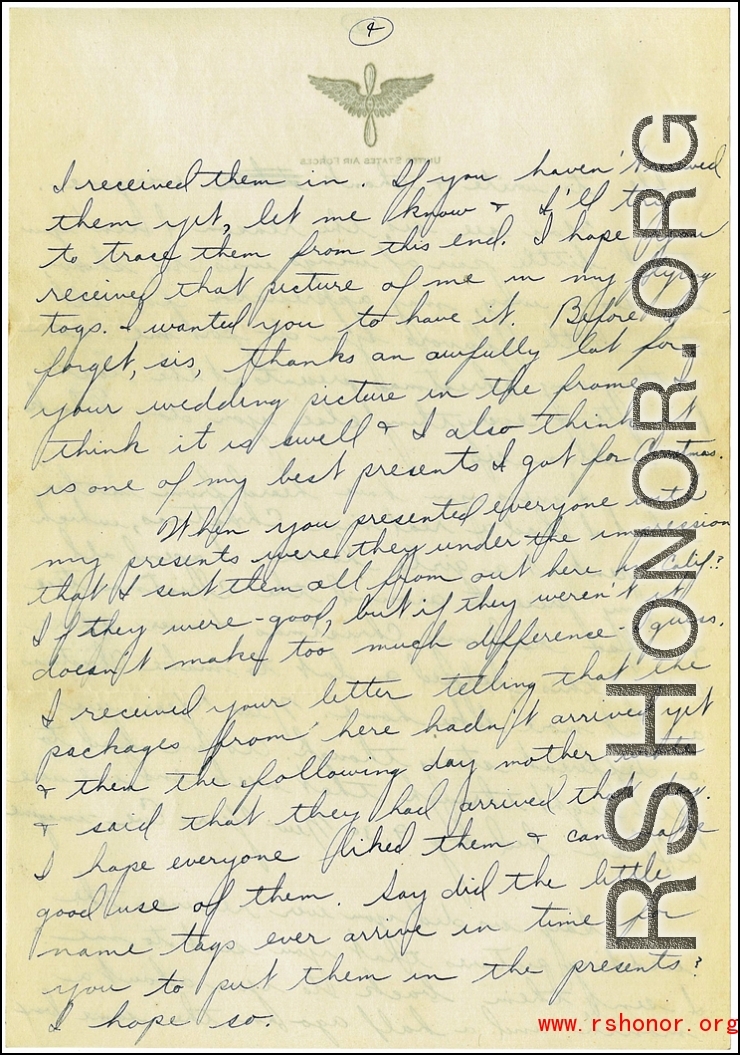 4
UNITED STATES AIR FORCES
I received them in. If you haven't received
them yet, let me know & I'll try
to trace them from this end. I hope you
received that picture of me in my flying
togs. I wanted you to have it. Before I
forget, sis, thanks an awfully lot for
your wedding picture in the frame. I
think it is swell & I also think it
is one of my best presents I got for Christmas.
When you presented everyone with
my presents were they under the impression
that I sent them all from out here in Calif.?
If they were - good, but if they weren't it
doesn't make too much difference - guess.
I received your letter telling that the
packages from here hadn't arrived yet
& then the following day mother wrote
& said that they had arrived that day.
I hope everyone liked them & can make
good use of them. Say did the little
name tags ever arrive in time for
you to put them in the presents?
I hope so.
RSHONOR.ORG
www.rshonor.org